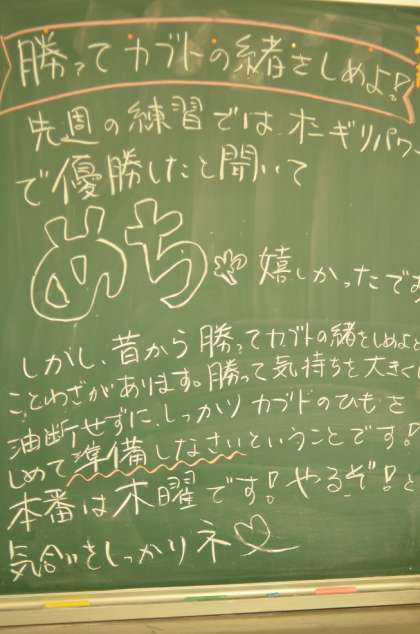 勝ってカブトの緒をしめよ!
先週の練習では オニギリパワー
で優勝したと聞いて
めちゃ 嬉しかったです
しかし、昔から 勝ってカブトの緒をしめよと
ことわざがあります。勝って気持ちを大きく
油断せずに、しっかりカブトのひもを
しめて準備しなさいということです!
本番は木曜です! やるぞ! と
気合いをしっかりネ